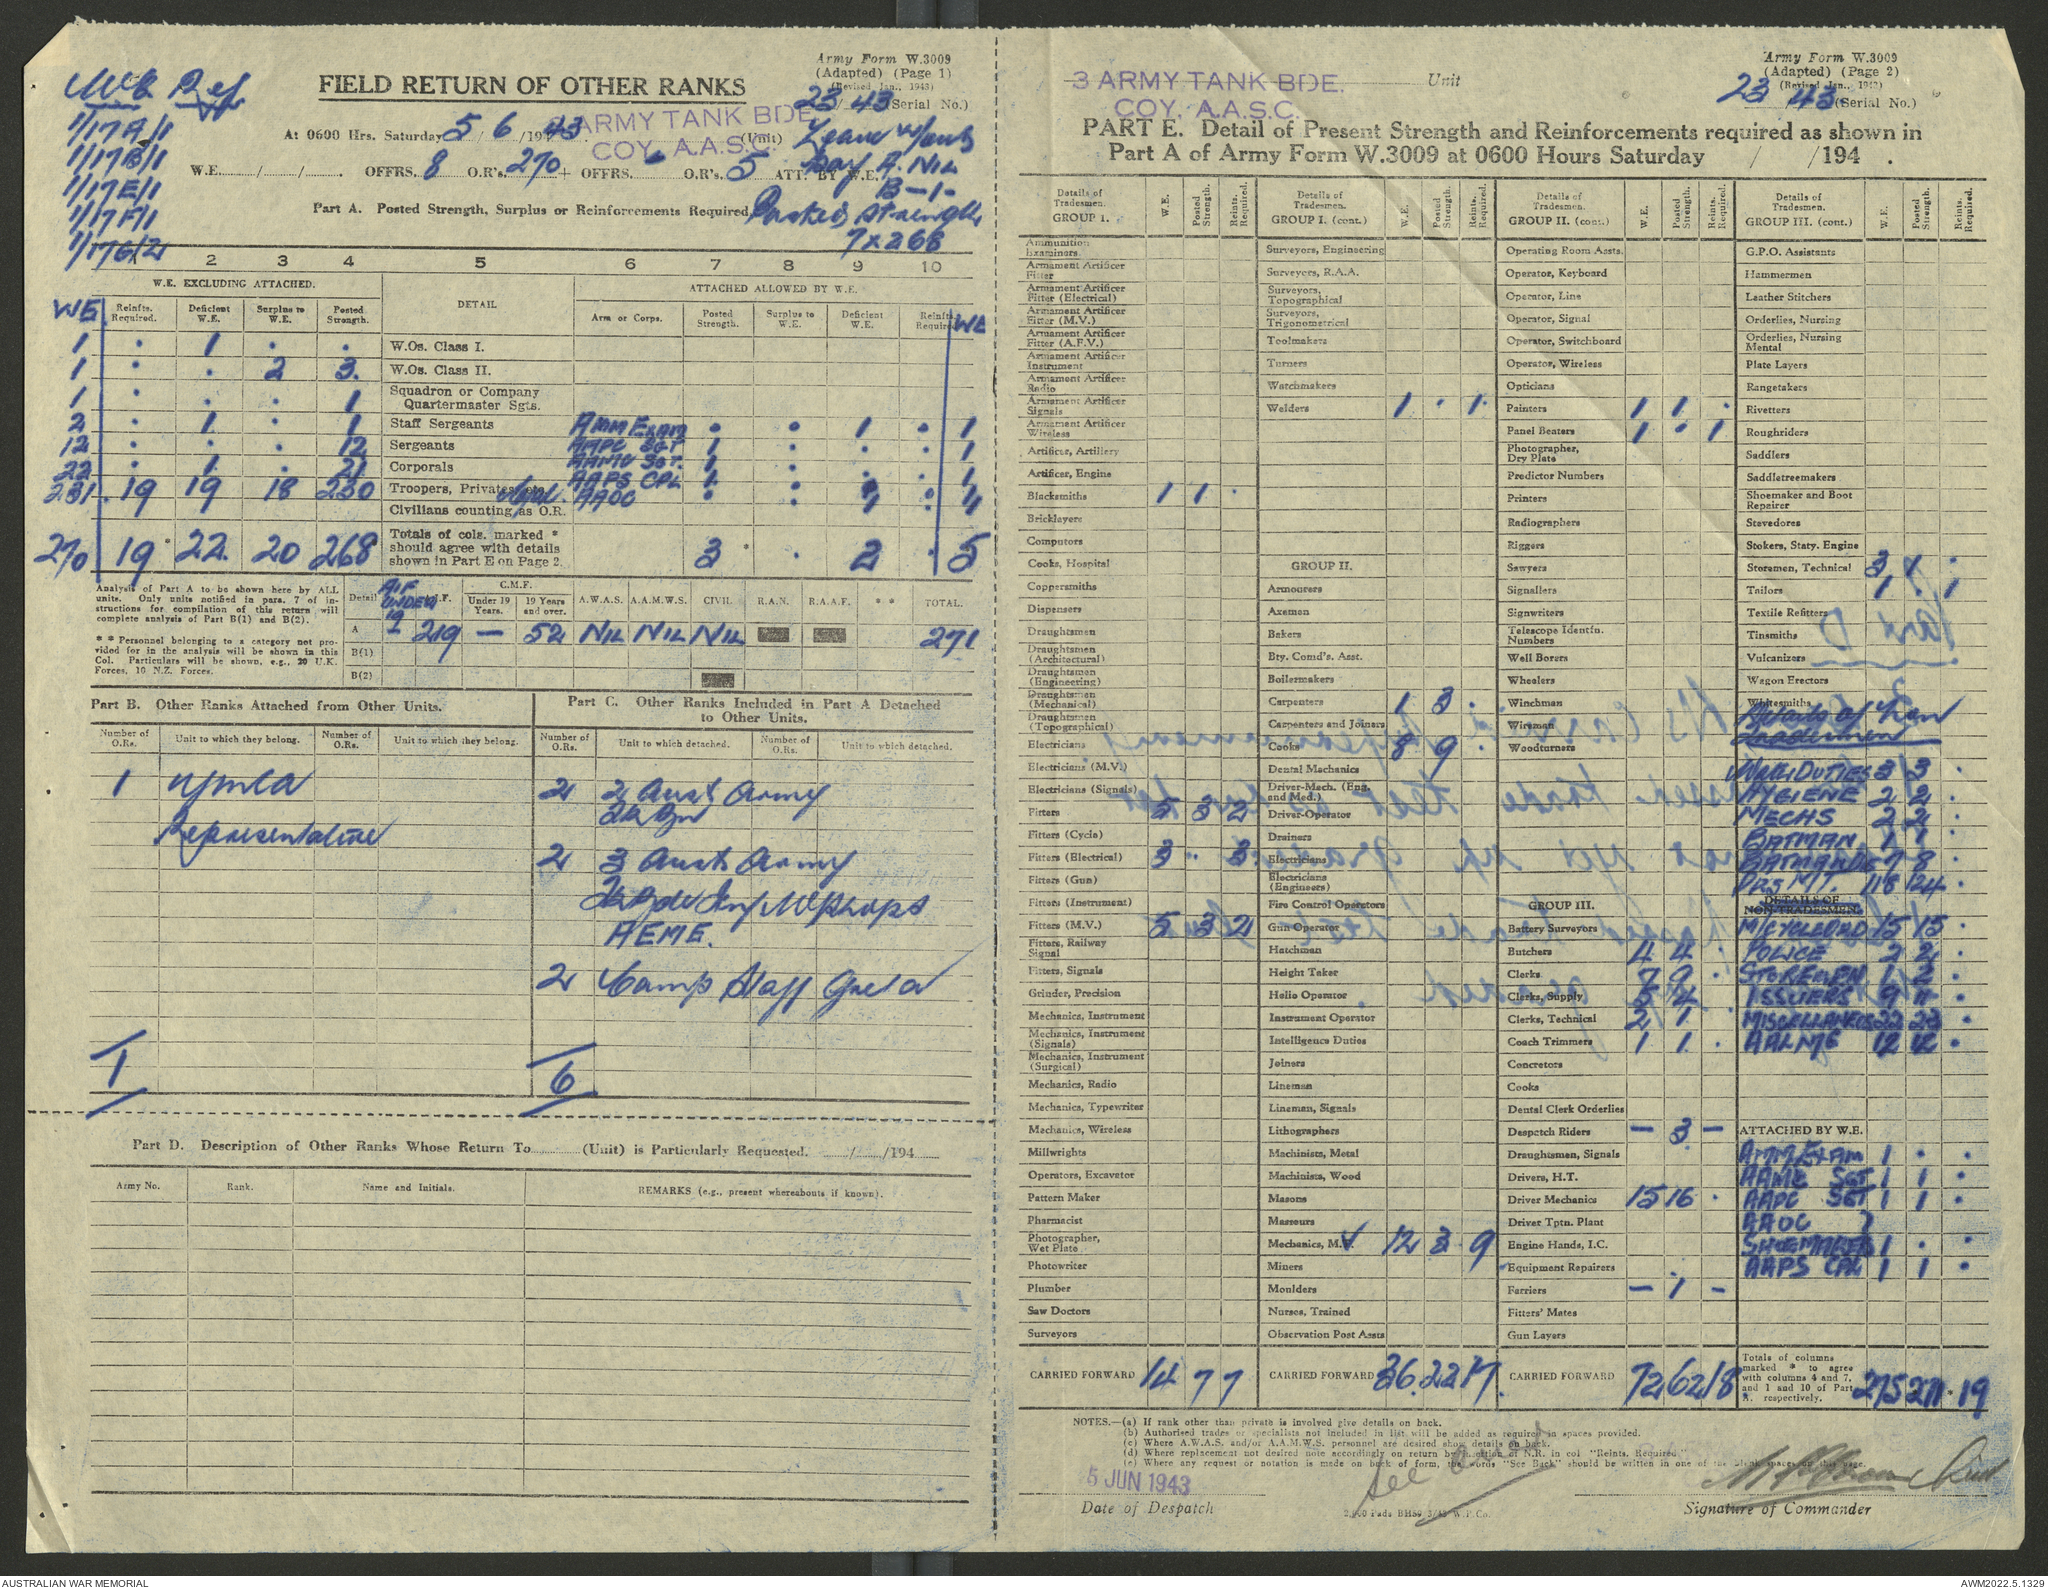 Army Form W.3009
(Adapted) (Page 1)
(Revised Jan., 1943)
FIELD RETURN OF OTHER RANKS
23/43 (Serial No.)
WE Ref
1/17A/1
1/17B/1
1/17E/1
1/17F/1
1/17G/2
At 0600 Hrs. Saturday 5/6/1943. ARMY TANK BDE. (Unit)
COY. A.A.S.C.
W.E. / / . OFFRS. 8 O.R's. 270 + OFFRS. O.R's. 5 ATT. BY W.E.
A. NIL
B-1-
Part A. Posted Strength, Surplus or Reinforcements Required.
Posted Strength
7 x 268
1 2 3 4 5 6 7 8 9 10
W.E. EXCLUDING ATTACHED. DETAIL ATTACHED ALLOWED BY W.E.
WE Reinfts. Required. Deficient W.E. Surplus to W.E. Posted Strength. Arm or Corps. Posted Strength. Surplus to W.E. Deficient W.E. Reinfts. Required. WE
1 . 1 . . W.Os. Class I.
1 . . 2 3. W.Os. Class II.
1 . . . 1 Squadron or Company Quartermaster Sgts.
2 . 1 . 1 Staff Sergeants AMM EXAM . . 1 . 1
12 . . . 12 Sergeants AAPC SGT 1 . . . 1
22 . 1 . 21 Corporals AAMC SGT. 1 . . . 1
231 . 19 19 18 230 Troopers, Privates, etc. AAPS CPL 1 . . . 1
Civilians counting as O.R. AAOC . . 1 . 1
270 19 * 22. 20 268 Totals of cols. marked * should agree with details shown in Part E on Page 2. 3 * . 2 . 5
Analysis of Part A to be shown here by ALL units. Only units notified in para. 7 of instructions for compilation of this return will complete analysis of Part B(1) and B(2).
* * Personnel belonging to a category not provided for in the analysis will be shown in this Col. Particulars will be shown, e.g., 20 U.K. Forces, 10 N.Z. Forces.
Detail AIF UNDER 19 C.M.F. Under 19 Years. 19 Years and over. A.W.A.S. A.A.M.W.S. CIVIL R.A.N. R.A.A.F. * * TOTAL.
A 219 — 52 NIL NIL NIL 271
B(1)
B(2)
Part B. Other Ranks Attached from Other Units.
Number of O.Rs. Unit to which they belong. Number of O.Rs. Unit to which they belong.
1 YMCA
Representative
1
Part C. Other Ranks Included in Part A Detached to Other Units.
Number of O.Rs. Unit to which detached. Number of O.Rs. Unit to which detached.
2 2 Aust Army
Tk Bn
2 3 Aust Army
Tk Bde Inf Wkshops
AEME.
2 Camp Staff Greta
6
Part D. Description of Other Ranks Whose Return To (Unit) is Particularly Requested. / /194
Army No. Rank. Name and Initials. REMARKS (e.g., present whereabouts if known).
Army Form W.3009
(Adapted) (Page 2)
(Revised Jan., 1943)
3 ARMY TANK BDE. Unit
COY. A.A.S.C.
23 43 (Serial No.)
PART E. Detail of Present Strength and Reinforcements required as shown in
Part A of Army Form W.3009 at 0600 Hours Saturday / /194 .
Details of Tradesmen. GROUP I. W.E. Posted Strength. Reinfts. Required.
Ammunition Examiners.
Armament Artificer Fitter
Armament Artificer Fitter (Electrical)
Armament Artificer Fitter (M.V.)
Armament Artificer Fitter (A.F.V.)
Armament Artificer Instrument
Armament Artificer Radio
Armament Artificer Signals
Armament Artificer Wireless
Artificer, Artillery
Artificer, Engine
Blacksmiths 1 1 .
Bricklayers
Computors
Cooks, Hospital
Coppersmiths
Dispensers
Draughtsmen
Draughtsmen (Architectural)
Draughtsmen (Engineering)
Draughtsmen (Mechanical)
Draughtsmen (Topographical)
Electricians
Electricians (M.V.)
Electricians (Signals)
Fitters 5 3 2
Fitters (Cycle)
Fitters (Electrical) 3 . 3
Fitters (Gun)
Fitters (Instrument)
Fitters (M.V.) 5 3 2
Fitters, Railway Signal
Fitters, Signals
Grinder, Precision
Mechanics, Instrument
Mechanics, Instrument (Signals)
Mechanics, Instrument (Surgical)
Mechanics, Radio
Mechanics, Typewriter
Mechanics, Wireless
Millwrights
Operators, Excavator
Pattern Maker
Pharmacist
Photographer, Wet Plate
Photowriter
Plumber
Saw Doctors
Surveyors
CARRIED FORWARD 14 7 7
Details of Tradesmen. GROUP I. (cont.) W.E. Posted Strength. Reinfts. Required.
Surveyors, Engineering
Surveyors, R.A.A.
Surveyors, Topographical
Surveyors, Trigonometrical
Toolmakers
Turners
Watchmakers
Welders 1 . 1.
GROUP II.
Armourers
Axemen
Bakers
Bty. Comd's. Asst.
Boilermakers
Carpenters 1 3 .
Carpenters and Joiners
Cooks 8 9 .
Dental Mechanics
Driver-Mech. (Eng. and Med.)
Driver-Operator
Drainers
Electricians
Electricians (Engineers)
Fire Control Operators
Gun Operator
Hatchman
Height Taker
Helio Operator
Instrument Operator
Intelligence Duties
Joiners
Lineman
Lineman, Signals
Lithographers
Machinists, Metal
Machinists, Wood
Masons
Masseurs
Mechanics, M.V. 12 3 9
Miners
Moulders
Nurses, Trained
Observation Post Assts
CARRIED FORWARD 36. 22 17.
Details of Tradesmen. GROUP II. (cont.) W.E. Posted Strength. Reinfts. Required.
Operating Room Assts.
Operator, Keyboard
Operator, Line
Operator, Signal
Operator, Switchboard
Operator, Wireless
Opticians
Painters 1 1 .
Panel Beaters 1 . 1
Photographer, Dry Plate
Predictor Numbers
Printers
Radiographers
Riggers
Sawyers
Signallers
Signwriters
Telescope Identfn. Numbers
Well Borers
Wheelers
Winchman
Wireman
Woodturners
GROUP III.
Battery Surveyors
Butchers 4 4 .
Clerks 7 9 .
Clerks, Supply 5 4 .
Clerks, Technical 2 1 .
Coach Trimmers 1 1 .
Concretors
Cooks
Dental Clerk Orderlies
Despatch Riders — 3 —
Draughtsmen, Signals
Drivers, H.T.
Driver Mechanics 15 16 .
Driver Tptn. Plant
Engine Hands, I.C.
Equipment Repairers
Farriers — 1 —
Fitters' Mates
Gun Layers
CARRIED FORWARD 72 62 18
Details of Tradesmen. GROUP III. (cont.) W.E. Posted Strength. Reinfts. Required.
G.P.O. Assistants
Hammermen
Leather Stitchers
Orderlies, Nursing
Orderlies, Nursing Mental
Plate Layers
Rangetakers
Rivetters
Roughriders
Saddlers
Saddletreemakers
Shoemaker and Boot Repairer
Stevedores
Stokers, Staty. Engine
Storemen, Technical 3
Tailors 1 . 1
Textile Refitters
Tinsmiths
Vulcanizers
Wagon Erectors
Whitesmiths
Details of Non
Tradesmen
WATER DUTIES 3 3 .
HYGIENE 2 2 .
MECHS 2 2 .
BATMAN 1 1 .
BATMAN DVR 7 8 .
DRS MT. 118 124 .
DETAILS OF NON-TRADESMEN
M/CYCLE ORD 15 15 .
POLICE 2 2 .
STOREMEN 1 2 .
ISSUERS 9 11 .
MISCELLANEOUS 22 23 .
AALME 12 12 .
ATTACHED BY W.E.
AMM EXAM 1 . .
AAMC SGT 1 1 .
AAPC SGT 1 1 .
AAOC }
SHOEMAKER 1 . .
AAPS CPL 1 1 .
Totals of columns marked * to agree with columns 4 and 7, and 1 and 10 of Part A. respectively. 275 271 * 19
NOTES.—(a) If rank other than private is involved give details on back.
(b) Authorised trades or specialists not included in list will be added as required in spaces provided.
(c) Where A.W.A.S. and/or A.A.M.W.S. personnel are desired show details on back.
(d) Where replacement not desired note accordingly on return by insertion of N.R. in col "Reints. Required."
(e) Where any request or notation is made on back of form, the words "See Back" should be written in one of the blank spaces on this page.
See over
5 JUN 1943
Date of Despatch
2,500 Pads BH59 3/43 W.P.Co.
Signature of Commander
AUSTRALIAN WAR MEMORIAL
AWM2022.5.1329